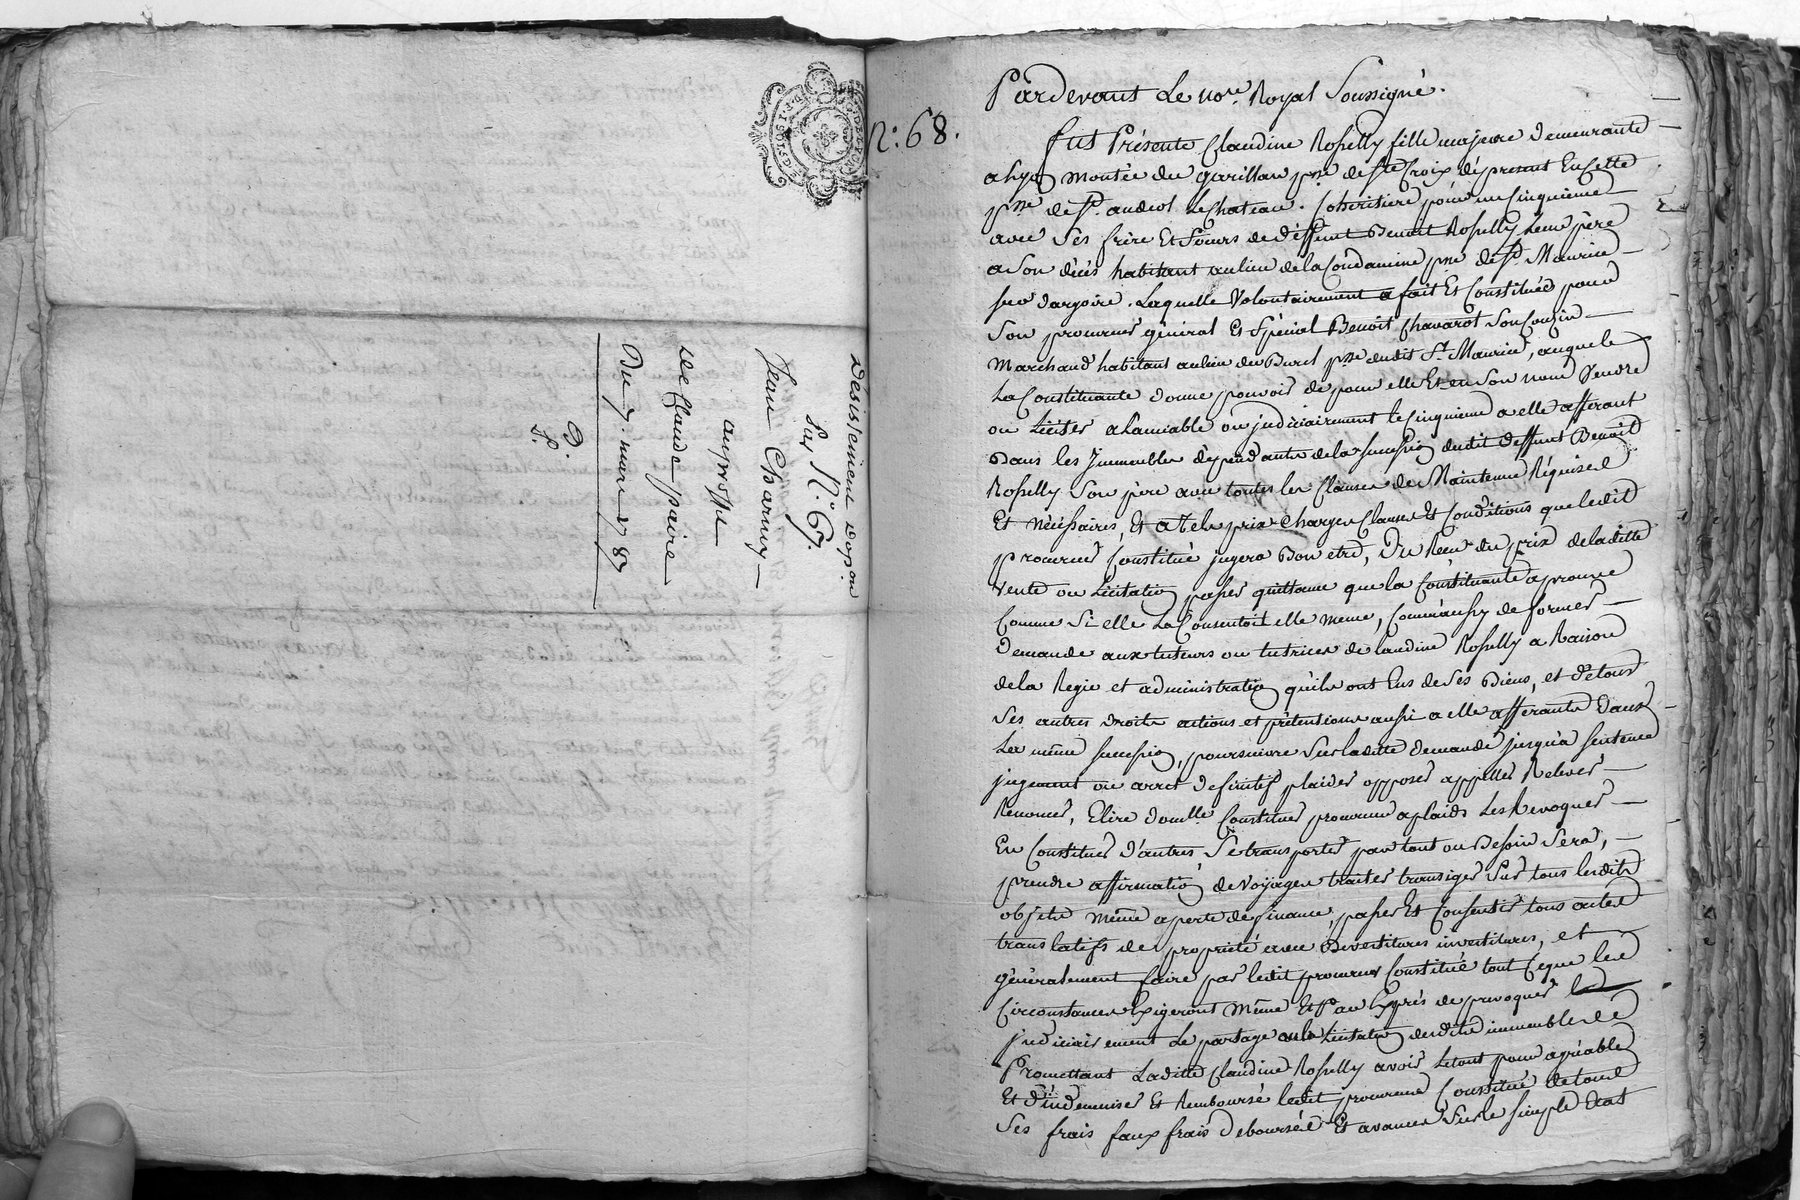 Désistement d'opon
Sur N.° 67.
Jean Charmy
au proffit
de Claude paire
Du 7. mars 1787
D.
S.
N.° 68.
Pardevant Le nore. Royal Soussigné.
fut Présente Claudine Rosselly fille majeure demeurante
a lyon montée du garillan psse de Ste Croix de present En cette
psse de St. andeol Le Chateau. Coheritiere pour un Cinquieme
avec Ses frère Et Soeurs de deffunt Benoit Rosselly Leur père
a Son décès habitant au lieu de la Condamine psse de St. Maurice
sur dargoire. Laquelle Volontairement a fait Et Constitué pour
Son procureur général Et Spécial Benoit Chavarot Son Couzin
Marchand habitant au lieu du Burel psse dudit St. Maurice, auquel
La Constituante donne pouvoir de pour elle Et en Son nom Vendre
ou Liciter a Lamiable ou judiciairement le Cinquieme a elle afferant
Dans les Immeubles dependants de la Succession dudit deffunt Benoit
Rosselly Son père avec toutes les Clauses de Maintenue Réquises
Et Nécéssaires, Et a Tels prix Charges Clauses Et Conditions que ledit
procureur Constitué jugera Bon etre, Du Recu du prix de laditte
Vente ou Licitation passer quittance que la Constituante aprouve
Comme Si elle La Consentoit elle meme, Comme aussy de former
Demande aux tuteurs ou tutrices de laudine Rosselly a Raison
de la Regie et administration qu'ils ont Eus de Ses Biens, et de tous
Ses autres droits actions et prétentions aussi a elle afferants dans
La même Succession, poursuivre Sur laditte demande jusqu'a Sentence
jugement ou arret definitif plaider opposer appeller Relever
Renoncer, Elire domlle. Constituer procureur a plaids Les Revoquer
En Constituer d'autres, Se transporter par tout ou Besoin Sera,
prendre affirmation de Voyages traiter transiger Sur tous lesdits
objets même a perte de finance, passer Et Consentir tous actes
translatifs de propriété avec Devestitures investitures, et
généralement faire par ledit procureur Constitué tout Ce que les
Circonstances Exigeront même Et Par Exprès de provoquer
judiciairement Le partage ou la Licitation desdits immeubles
Promettant Laditte Claudine Rosselly avoir Letout pour agréable
Et d'indemniser Et Remboursé ledit procureur Constitué de tous
Ses frais faux frais deboursés Et avances Sur le Simple Etat